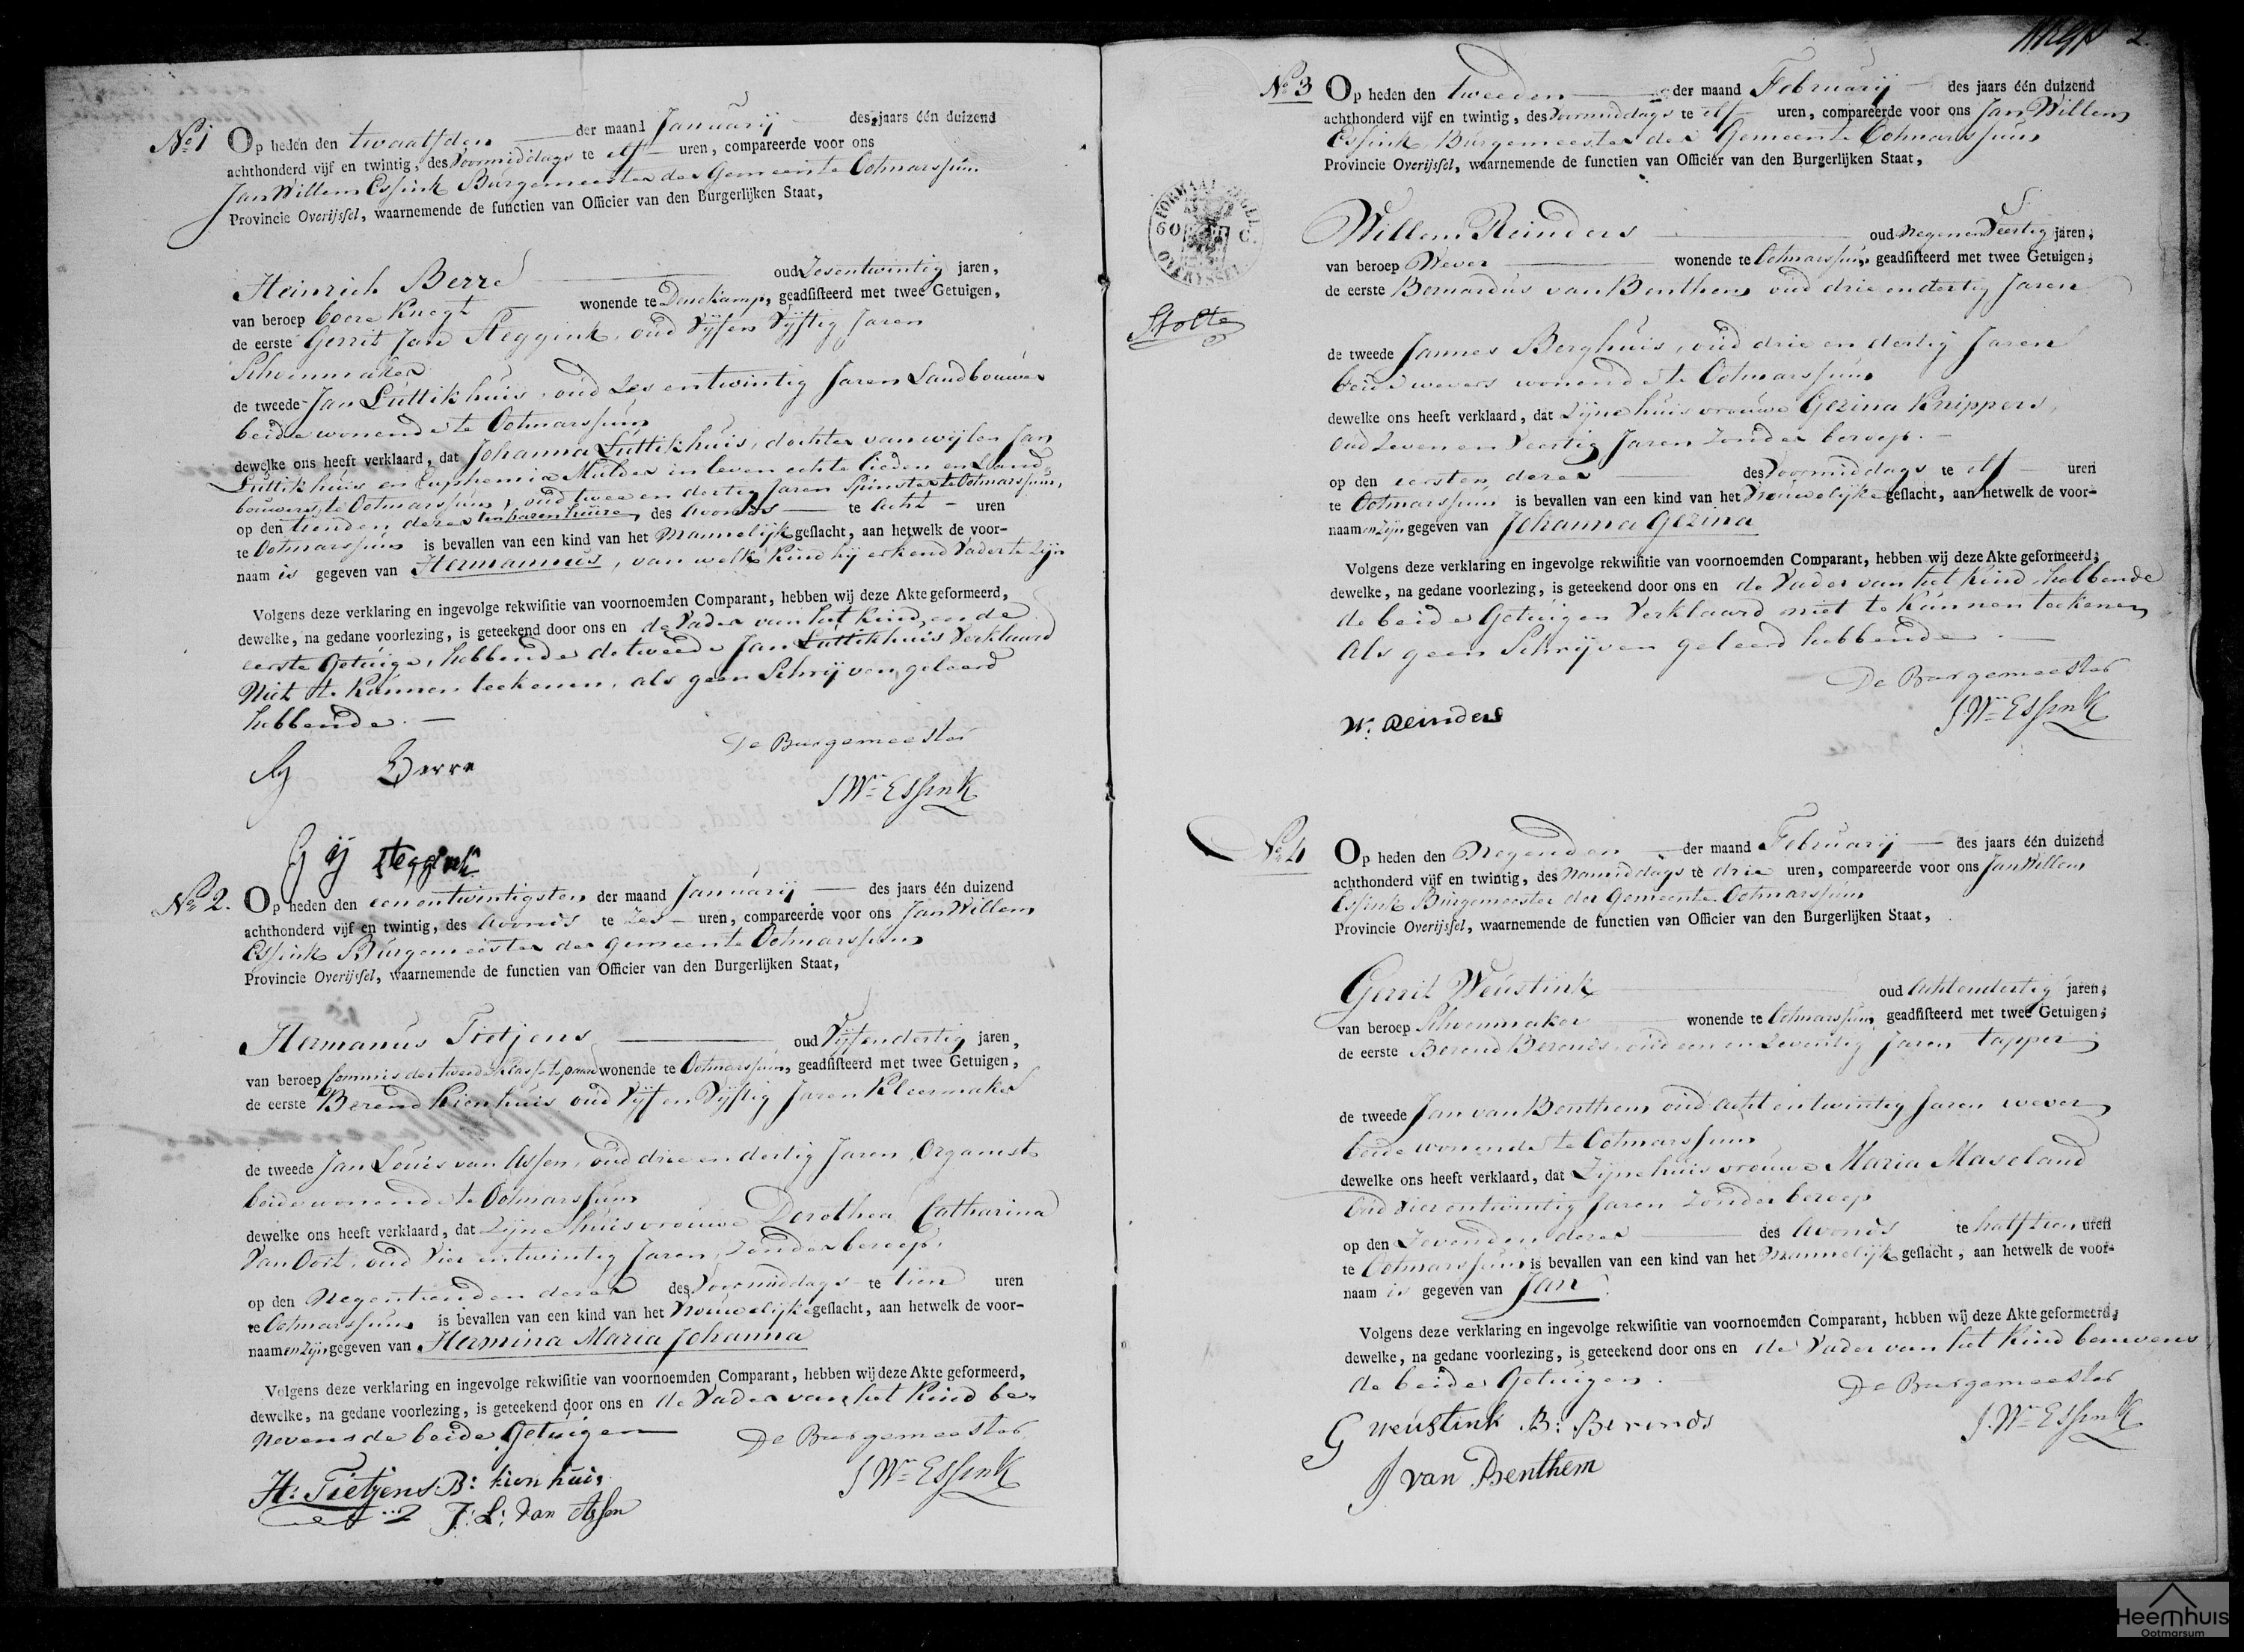 No 1 Op heden den twaalfden der maand Januarij des jaars één duizend
achthonderd vijf en twintig, des Voormiddags te elf uren, compareerde voor ons
Jan Willem Essink Burgemeester der Gemeente Ootmarssum
Provincie Overijssel, waarnemende de functien van Officier van den Burgerlijken Staat,
Heinrich Berre oud Zesentwintig jaren,
van beroep boere Knegt wonende te Denekamp, geadsisteerd met twee Getuigen,
de eerste Gerrit Jan Steggink, oud Vijf en Vijftig Jaren
Schoenmaker
de tweede Jan Luttikhuis, oud Zes entwintig Jaren Landbouwer
beide wonende te Ootmarssum
dewelke ons heeft verklaard, dat Johanna Luttikhuis, dochter van wijlen Jan
Luttikhuis en Euphemia Mulder in leven echte lieden en Land-
bouwers te Ootmarssum, oud twee en dertig Jaren Spinster te Ootmarssum,
op den tienden dezer ten haren huize, des Avonds te Acht uren
te Ootmarssum is bevallen van een kind van het Mannelijk geslacht, aan hetwelk de voor-
naam is gegeven van Hermannus, van welk Kind hij erkend Vader te zijn
Volgens deze verklaring en ingevolge rekwisitie van voornoemden Comparant, hebben wij deze Akte geformeerd,
dewelke, na gedane voorlezing, is geteekend door ons en de Vader van het Kind, en de
eerste Getuige, hebbende de tweede Jan Luttikhuis Verklaard
Niet te Kunnen teekenen, als geen Schrijven geleerd
hebbende.
De Burgemeester
Berre
J Wm Essink
G J Steggink
No 2. Op heden den een entwintigsten der maand Januarij des jaars één duizend
achthonderd vijf en twintig, des Avonds te Zes uren, compareerde voor ons Jan Willem
Essink Burgemeester der Gemeente Ootmarssum
Provincie Overijssel, waarnemende de functien van Officier van den Burgerlijken Staat,
Hermanus Tietjens oud Vijfendertig jaren,
van beroep Commis der tweede Klasse te paard wonende te Ootmarssum, geadsisteerd met twee Getuigen,
de eerste Berend Kienhuis oud Vijf en Vijftig Jaren Kleermaker
de tweede Jan Louis van Assen, oud drie en dertig Jaren, Organist
beide wonende te Ootmarssum
dewelke ons heeft verklaard, dat Zijne huisvrouwe Dorothea Catharina
Van Oort, oud Vier entwintig Jaren, Zonder beroep,
op den Negentienden dezer des Voormiddags te tien uren
te Ootmarssum is bevallen van een kind van het Vrouwelijke geslacht, aan hetwelk de voor-
naam en zijn gegeven van Hermina Maria Johanna
Volgens deze verklaring en ingevolge rekwisitie van voornoemden Comparant, hebben wij deze Akte geformeerd,
dewelke, na gedane voorlezing, is geteekend door ons en de Vader van het Kind be-
nevens de beide Getuigen
De Burgemeester
H: Tietjens B: kienhuis
J Wm Essink
J: L: van Assen
2.
No 3 Op heden den tweeden der maand Februarij des jaars één duizend
achthonderd vijf en twintig, des Voormiddags te elf uren, compareerde voor ons Jan Willem
Essink Burgemeester der Gemeente Ootmarssum
Provincie Overijssel, waarnemende de functien van Officier van den Burgerlijken Staat,
FORMAAT ZEGEL
60 C.
OVERYSSEL
Stolte
Willem Reinders oud Negenen Veertig jaren,
van beroep Wever wonende te Ootmarssum, geadsisteerd met twee Getuigen,
de eerste Bernardus van Benthem oud drie en dertig Jaren
de tweede Jannes Berghuis, oud drie en dertig Jaren
beide wevers wonende te Ootmarssum
dewelke ons heeft verklaard, dat Zijne huisvrouwe Gezina Knippers,
oud Zeven en Veertig Jaren Zonder beroep.
op den eersten dezer des Voormiddags te elf uren
te Ootmarssum is bevallen van een kind van het Vrouwelijke geslacht, aan hetwelk de voor-
naam en zijn gegeven van Johanna Gezina
Volgens deze verklaring en ingevolge rekwisitie van voornoemden Comparant, hebben wij deze Akte geformeerd,
dewelke, na gedane voorlezing, is geteekend door ons en de Vader van het Kind, hebbende
de beide Getuigen Verklaard niet te Kunnen teekenen
Als geen Schrijven geleerd hebbende.
De Burgemeester
W: Reinders
J Wm Essink
No 4 Op heden den Negenden der maand Februarij des jaars één duizend
achthonderd vijf en twintig, des Namiddags te drie uren, compareerde voor ons Jan Willem
Essink Burgemeester der Gemeente Ootmarssum
Provincie Overijssel, waarnemende de functien van Officier van den Burgerlijken Staat,
Gerrit Weustink oud Achtendertig jaren,
van beroep Schoenmaker wonende te Ootmarssum, geadsisteerd met twee Getuigen,
de eerste Berend Berends, oud een en Zeventig Jaren tapper
de tweede Jan van Benthem oud acht entwintig Jaren wever
beide wonende te Ootmarssum
dewelke ons heeft verklaard, dat Zijne huisvrouwe Maria Maseland
Oud Vier entwintig Jaren Zonder beroep
op den Zevenden dezer des Avonds te half tien uren
te Ootmarssum is bevallen van een kind van het Mannelijk geslacht, aan hetwelk de voor-
naam is gegeven van Jan.
Volgens deze verklaring en ingevolge rekwisitie van voornoemden Comparant, hebben wij deze Akte geformeerd,
dewelke, na gedane voorlezing, is geteekend door ons en de Vader van het Kind benevens
de beide Getuigen.
De Burgemeester
G Weustink B: Berends
J. Wm Essink
J van Benthem
Heemhuis
Ootmarsum